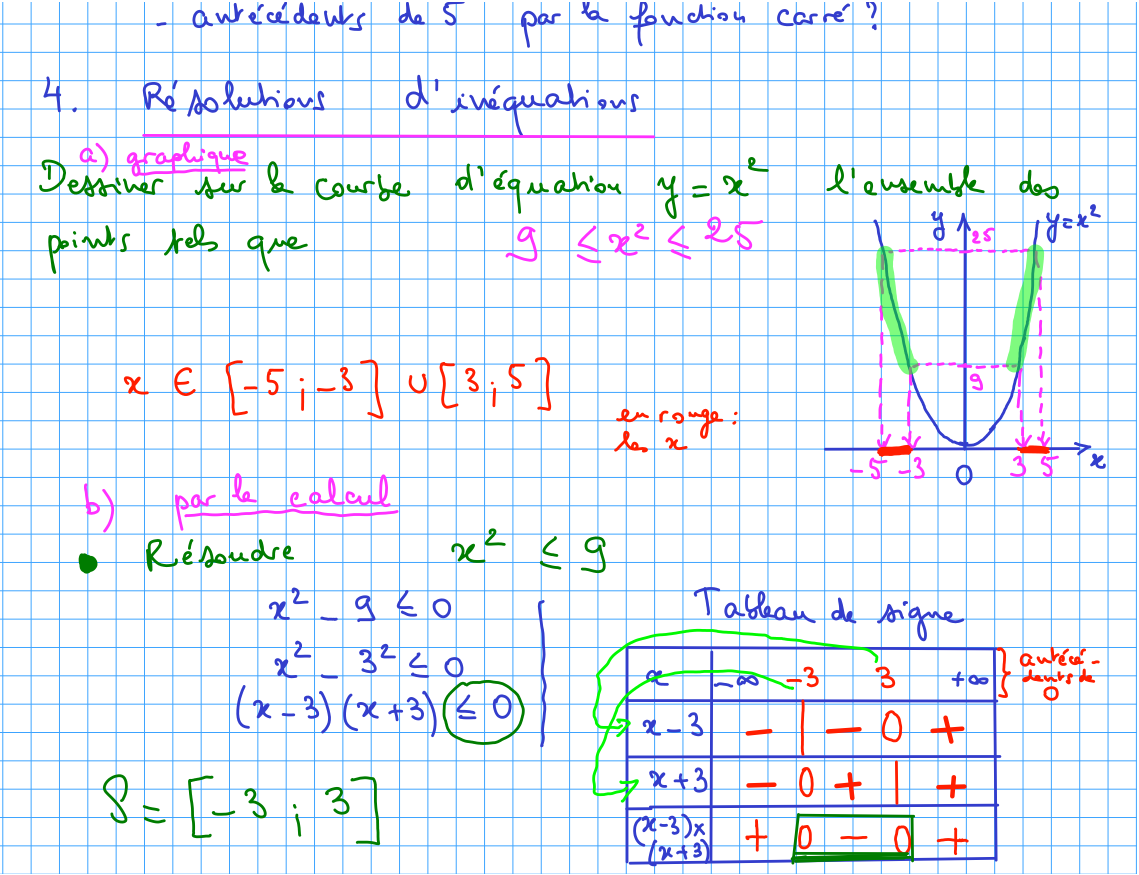 - antécédents de 5 par la fonction carré ?
4. Résolutions d'inéquations
a) graphique
Dessiner sur la courbe d'équation y = x² l'ensemble des
points tels que 9 ≤ x² ≤ 25
y 25 y = x²
9
x ∈ [-5 ; -3] ∪ [3 ; 5]
en rouge :
les x
-5 -3 0 3 5 x
b) par le calcul
• Résoudre x² ≤ 9
x² - 9 ≤ 0
x² - 3² ≤ 0
(x - 3)(x + 3) ≤ 0
S = [-3 ; 3]
Tableau de signe
x -∞ -3 3 +∞
antécé-
dents de
0
x - 3 - | - 0 +
x + 3 - 0 + | +
(x-3)×
(x+3) + 0 - 0 +